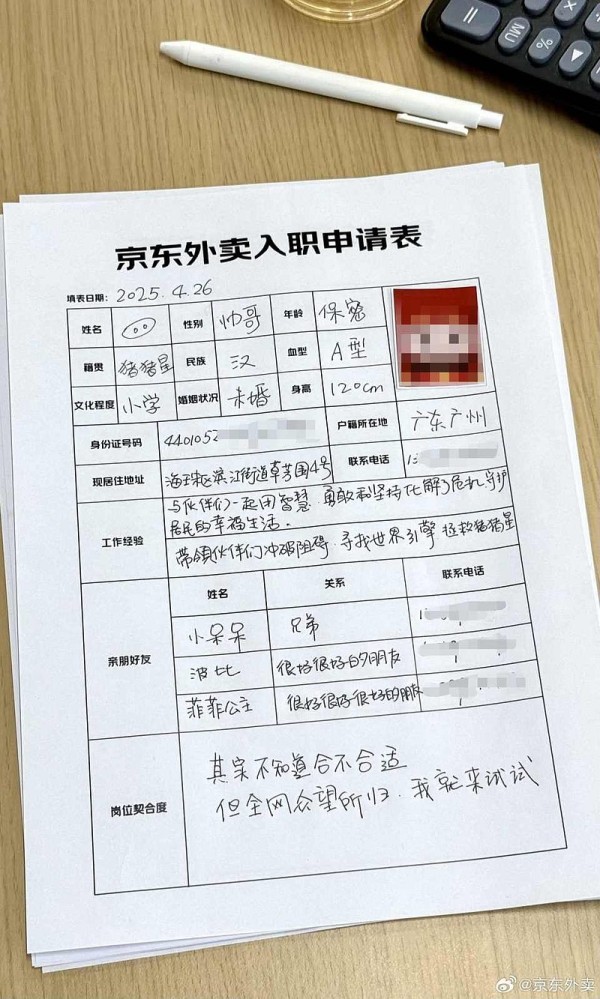 MU
%
京东外卖入职申请表
填表日期: 2025.4.26
姓名 性别 帅哥 年龄 保密
籍贯 猪猪星 民族 汉 血型 A型
文化程度 小学 婚姻状况 未婚 身高 120cm
身份证号码 4401052 户籍所在地 广东广州
现居住地址 海珠区滨江街道草芳围4号 联系电话 1
工作经验 与伙伴们一起用智慧、勇敢和坚持化解了危机,守护
居民的幸福生活。
带领伙伴们冲破阻碍、寻找世界引擎 拯救猪猪星
亲朋好友 姓名 关系 联系电话
小呆呆 兄弟
波比 很好很好的朋友
菲菲公主 很好很好很好的朋友
岗位契合度 其实不知道合不合适
但全网众望所归、我就来试试
@京东外卖